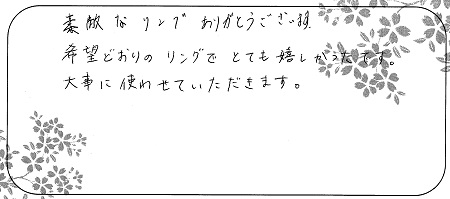 素敵なリング ありがとうございます。
希望どおりのリングで とても嬉しかったです。
大事に使わせていただきます。